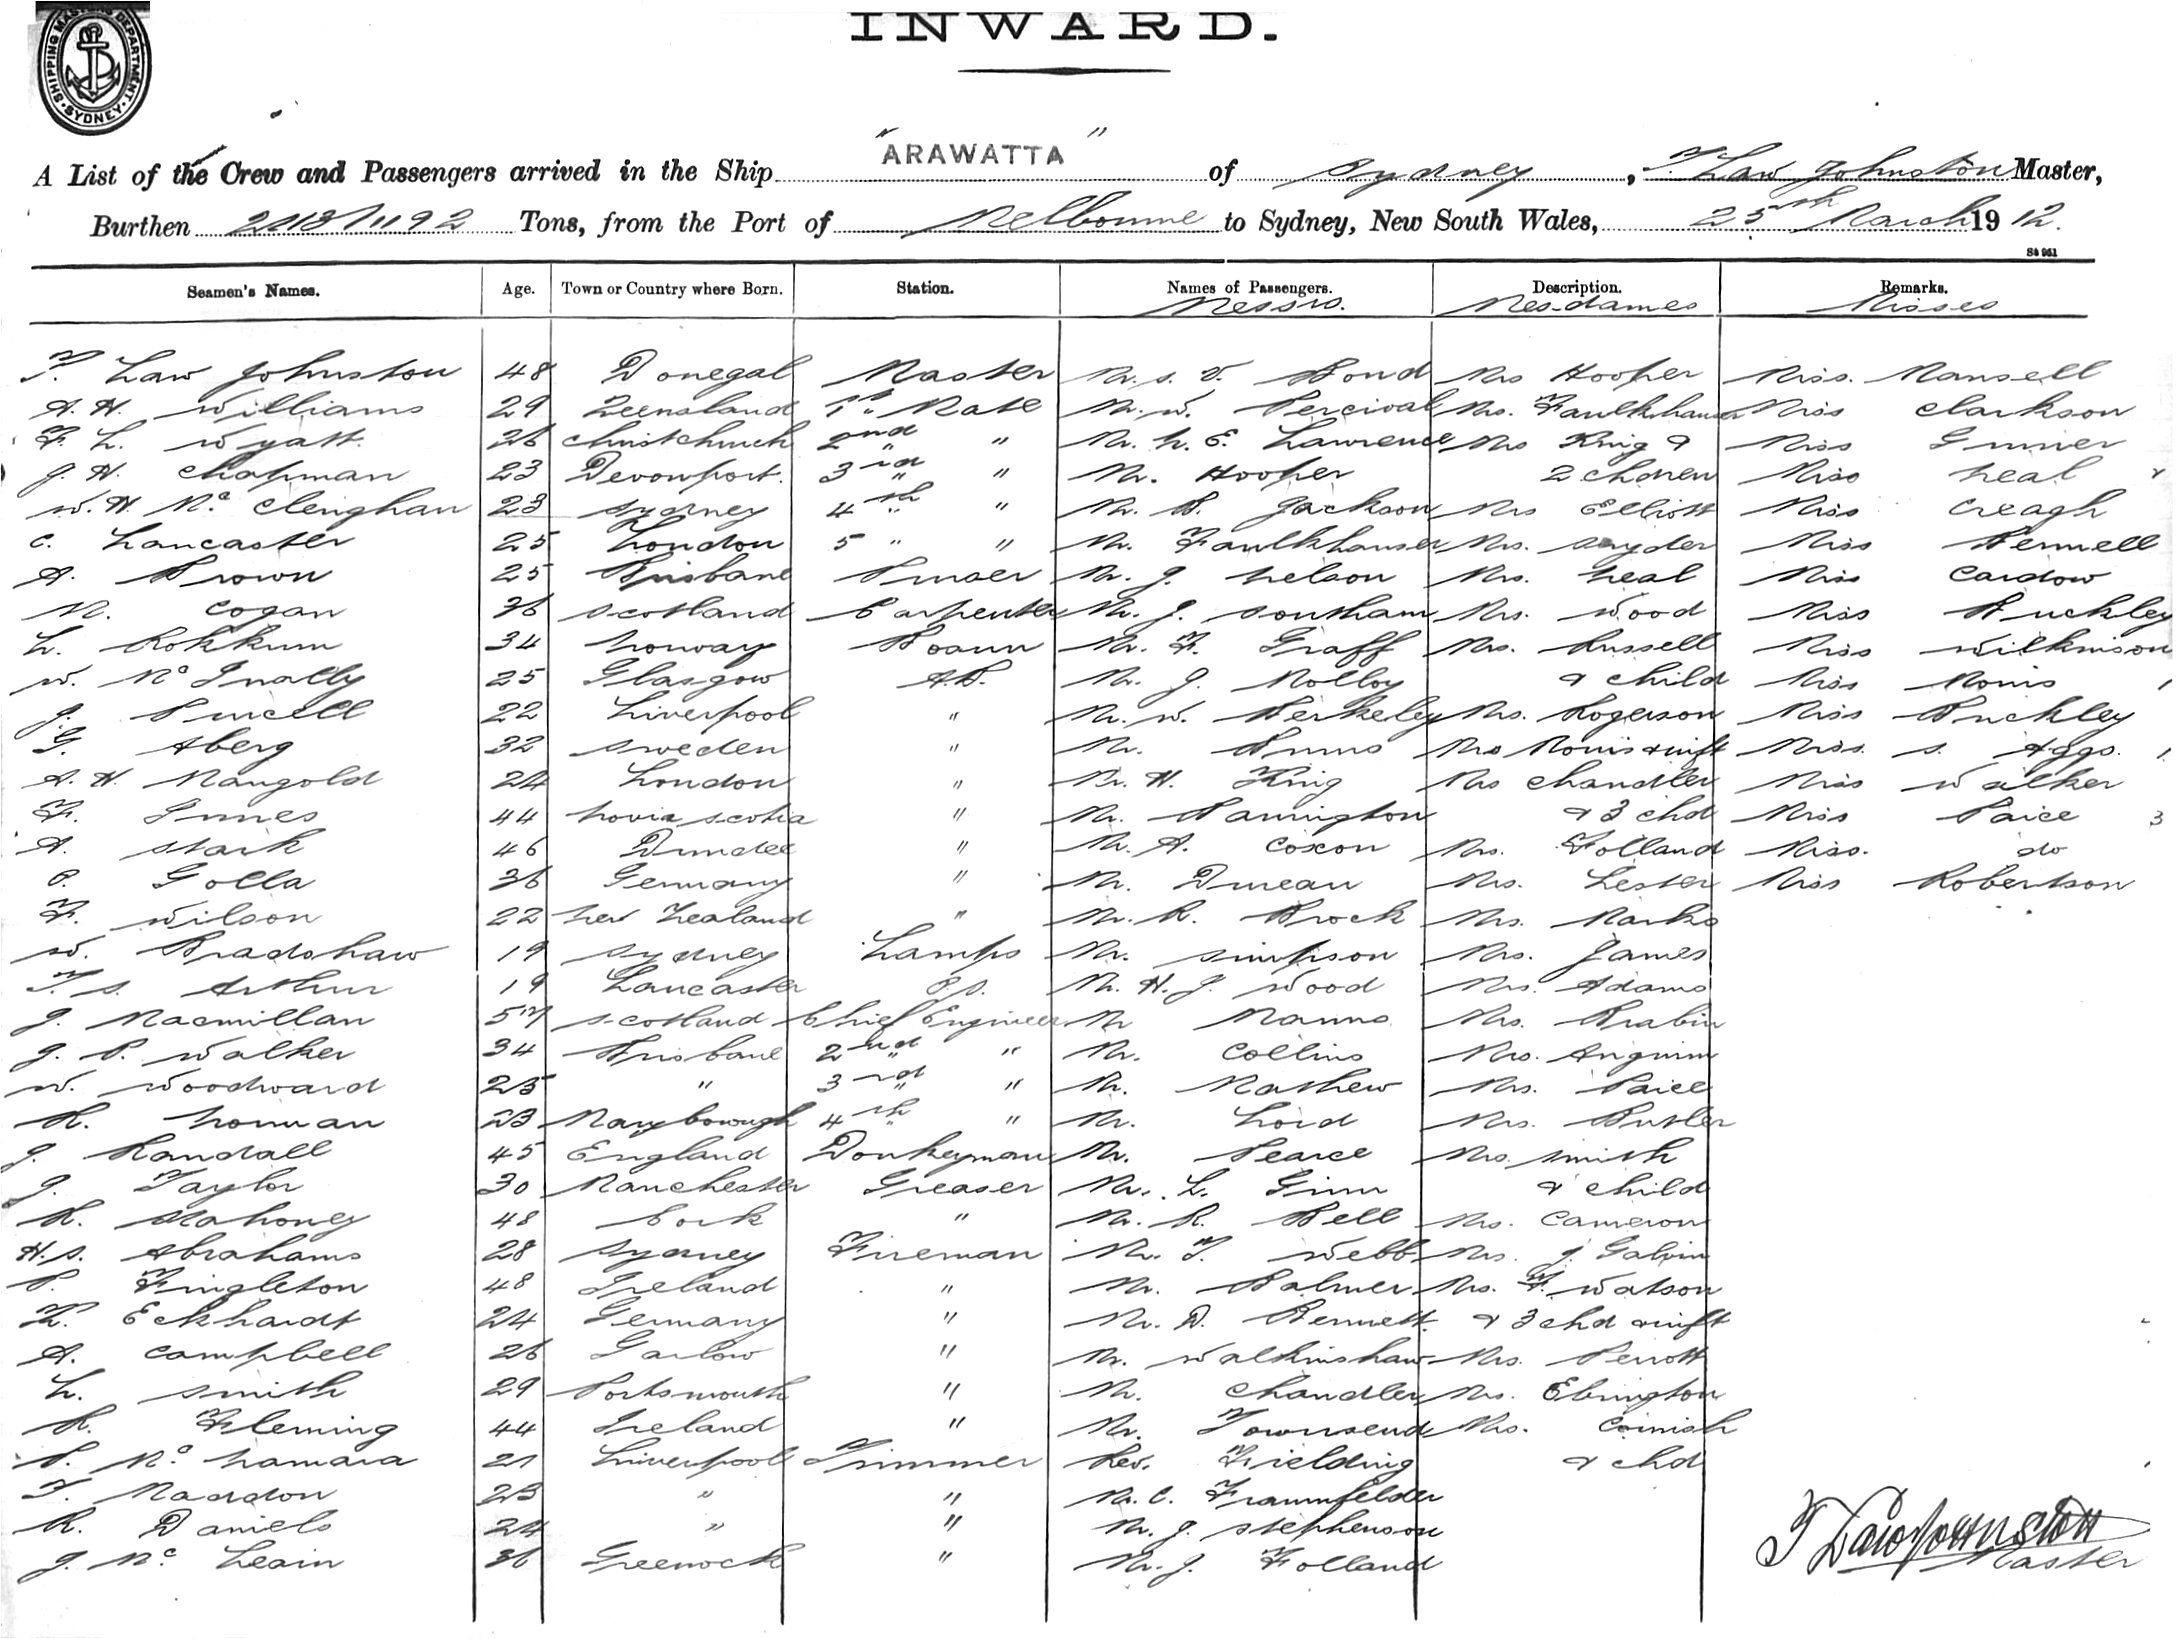 SHIPPING MASTERS DEPARTMENT SYDNEY
INWARD.
A List of the Crew and Passengers arrived in the Ship "ARAWATTA" of Sydney, T. Law Johnston Master,
Burthen 2118/1192 Tons, from the Port of Melbourne to Sydney, New South Wales, 25th March 1912.
St 961
Seamen's Names. Age. Town or Country where Born. Station. Names of Passengers. Description. Remarks.
Messrs. Mesdames Misses
T. Law Johnston 48 Donegal Master Mr. S. V. Bond Mrs Hooper Miss. Mansell
A. H. Williams 29 Queensland 1st Mate Mr. W. Percival Mrs. Faulkhauser Miss Clarkson
F. L. Wyatt. 26 Christchurch 2nd " Mr. H. E. Lawrence Mrs King & Miss Gunner
J. H. Chapman 23 Devonport. 3rd " " Mr. Hooper 2 chdren Miss Neal
W. H. Mc Clenghan 23 Sydney 4th " " Mr. B. Jackson Mrs Elliott Miss Creagh
C. Lancaster 25 London 5 " " Mr. Faulkhauser Mrs. Snyder Miss Pennell
A. Brown 25 Brisbane Purser Mr. J. Nelson Mrs. Neal Miss Cardow
M. Cogan 36 Scotland Carpenter Mr. J. Southam Mrs. Wood Miss Buckley
L. Rokkum 34 Norway Bosun Mr. F. Graff Mrs. Russell Miss Wilkinson
W. Mc Inally 25 Glasgow A.B. Mr. J. Molloy & child Miss Morris
J. Purcell 22 Liverpool " Mr. W. Berkeley Mrs. Rogerson Miss Buckley
G. Aberg 32 Sweden " Mr. Burns Mrs Morris & inft Miss. S. Aggs.
A. H. Mangold 24 London " Mr. H. King Mrs Chandler Miss Walker
F. Innes 44 Novia Scotia " Mr. Bannington & 3 chd Miss Paice 3
A. Stark 46 Dundee " Mr. A. Coxon Mrs. Folland Miss. do
P. Golla 36 Germany " Mr. Duncan Mrs. Lester Miss Robertson
F. Wilson 22 New Zealand " Mr. R. Brock Mrs. Marks
W. Bradshaw 19 Sydney Lamps Mr. Simpson Mrs. James
T. S. Arthur 19 Lancaster O.S. Mr. H. J. Wood Mrs. Adams
J. Macmillan 57 Scotland Chief Engineer Mr Manns Mrs. Brabin
J. P. Walker 34 Brisbane 2nd " " Mr. Collins Mrs. Anguim
W. Woodward 25 " 3rd " " Mr. Mathew Mrs. Paice
R. Norman 23 Maryborough 4th " " Mr. Lord Mrs. Butler
J. Randall 45 England Donkeyman Mr. Pearce Mrs. Smith
J. Taylor 30 Manchester Greaser Mr. L. Ginn & child
R. Mahoney 48 Cork " Mr. R. Bell Mrs. Cameron
H. S. Abrahams 28 Sydney Fireman Mr. T. Webb Mrs. J. Galvin
P. Fingleton 48 Ireland " Mr. Balmer Mrs. F. Watson
K. Eckhardt 24 Germany " Mr. D. Bennett. & 3 chd & inft
A. Campbell 26 Garlow " Mr. Walkinshaw Mrs. Perrott
L. Smith 29 Portsmouth " Mr. Chandler Mrs. Ebrington
R. Fleming 44 Ireland " Mr. Townsend Mrs. Cornish
P. Mc Namara 21 Liverpool Trimmer Rev. Fielding & chd
T. Maddon 23 " " Mr. C. Fraumfelder
R. Daniels 24 " " Mr. J. Stephenson
J. Mc Leain 36 Greenock " Mr. J. Folland
T Law Johnston
Master